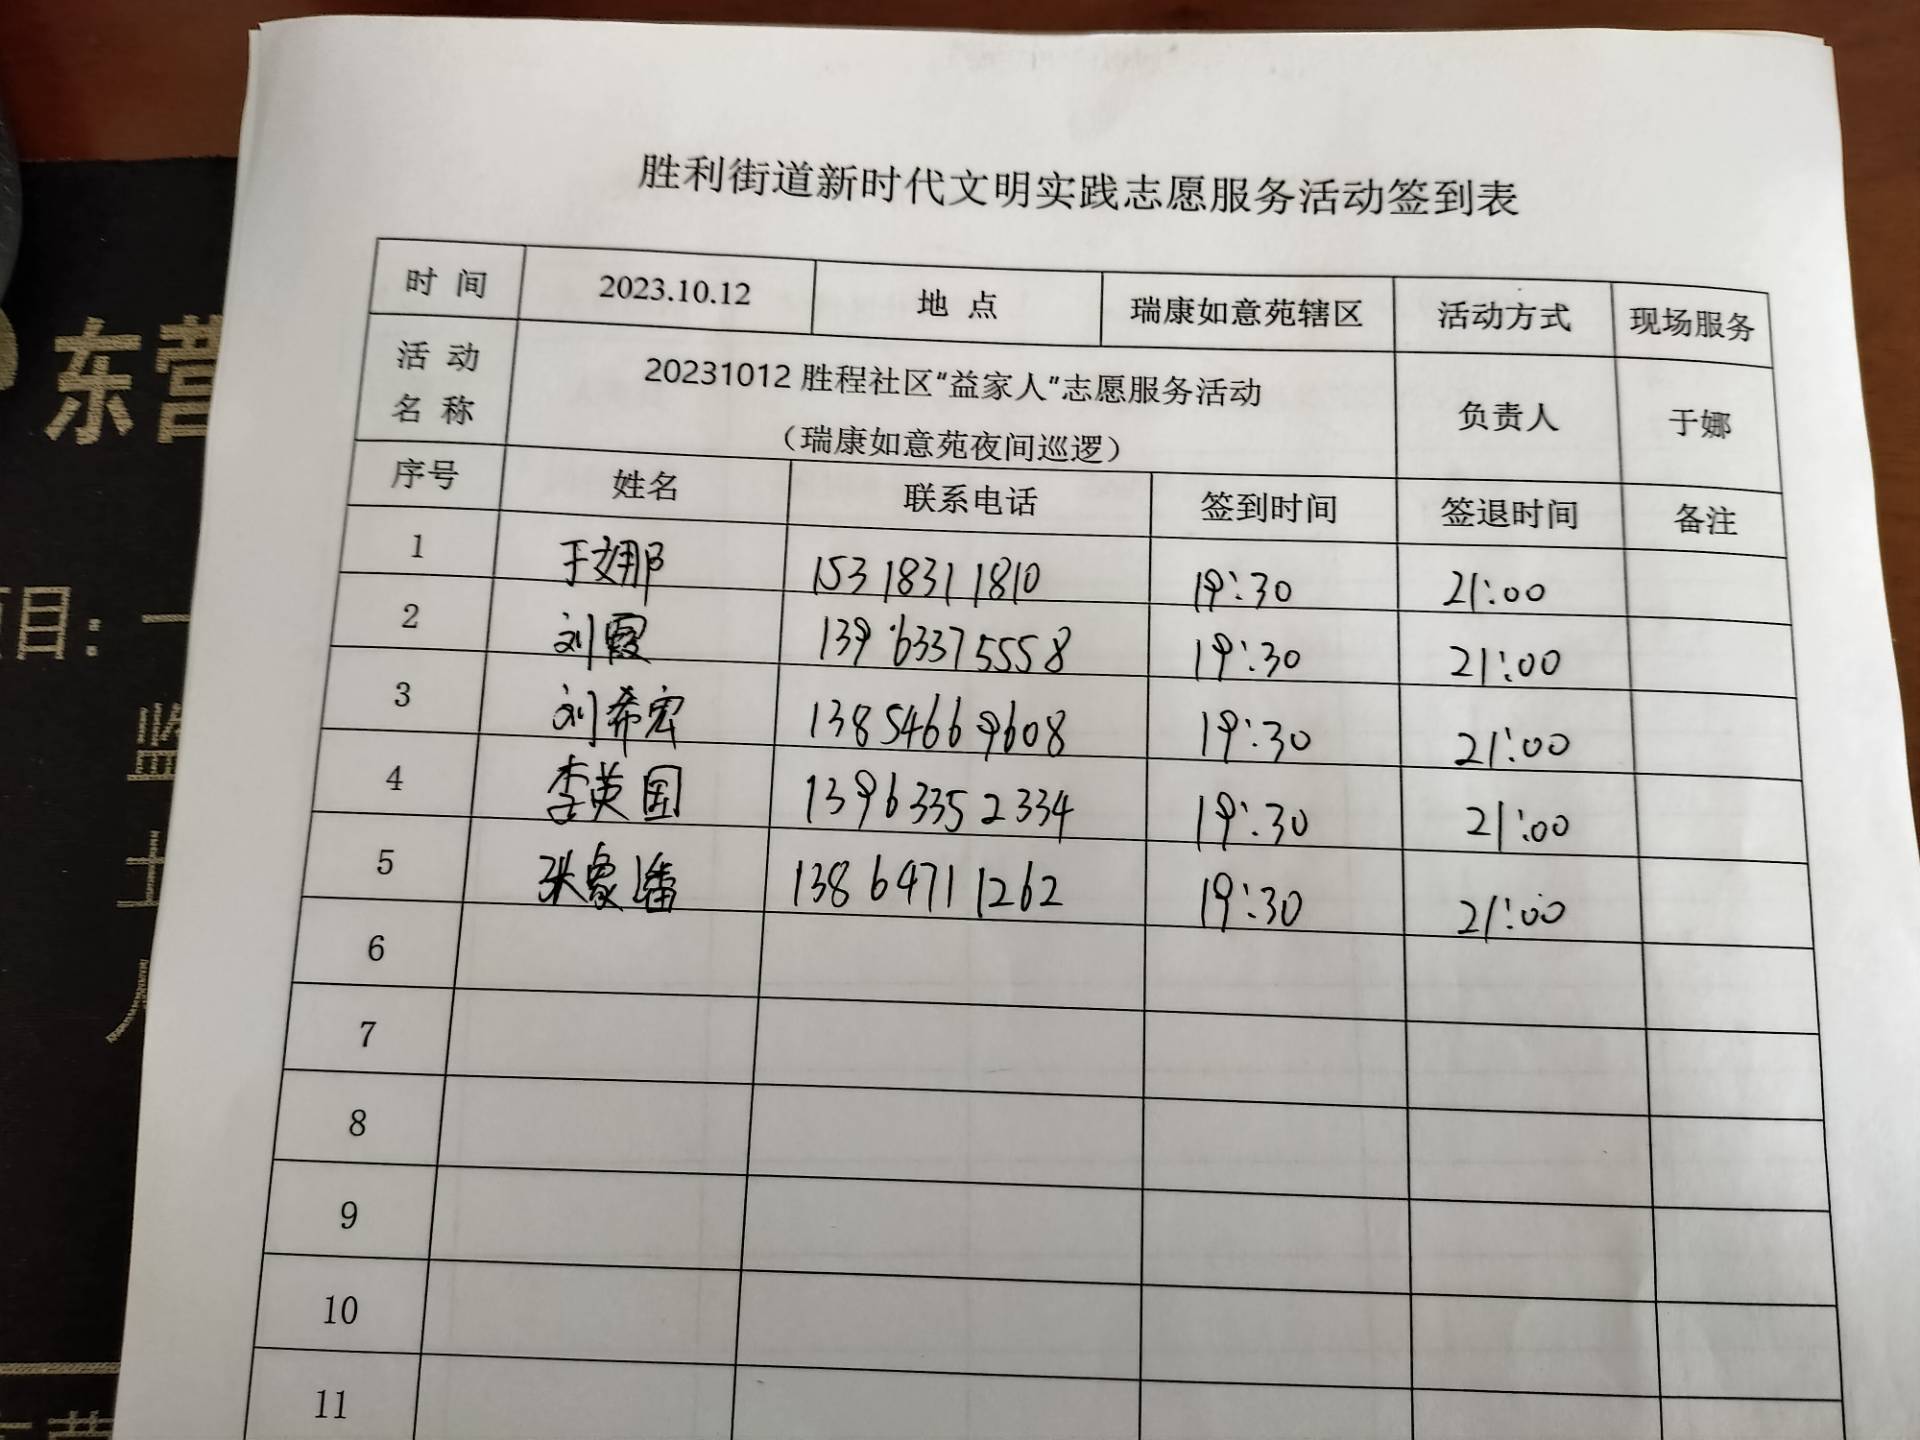 胜利街道新时代文明实践志愿服务活动签到表
时 间 2023.10.12 地 点 瑞康如意苑辖区 活动方式 现场服务
活 动 名 称 20231012 胜程社区“益家人”志愿服务活动 负责人 于娜
（瑞康如意苑夜间巡逻）
序号 姓名 联系电话 签到时间 签退时间 备注
1 于娜 15318311810 19:30 21:00
2 刘霞 13963375558 19:30 21:00
3 刘希宏 13854669608 19:30 21:00
4 李英国 13963352334 19:30 21:00
5 张 13864711262 19:30 21:00
6
7
8
9
10
11
东营
项目：一